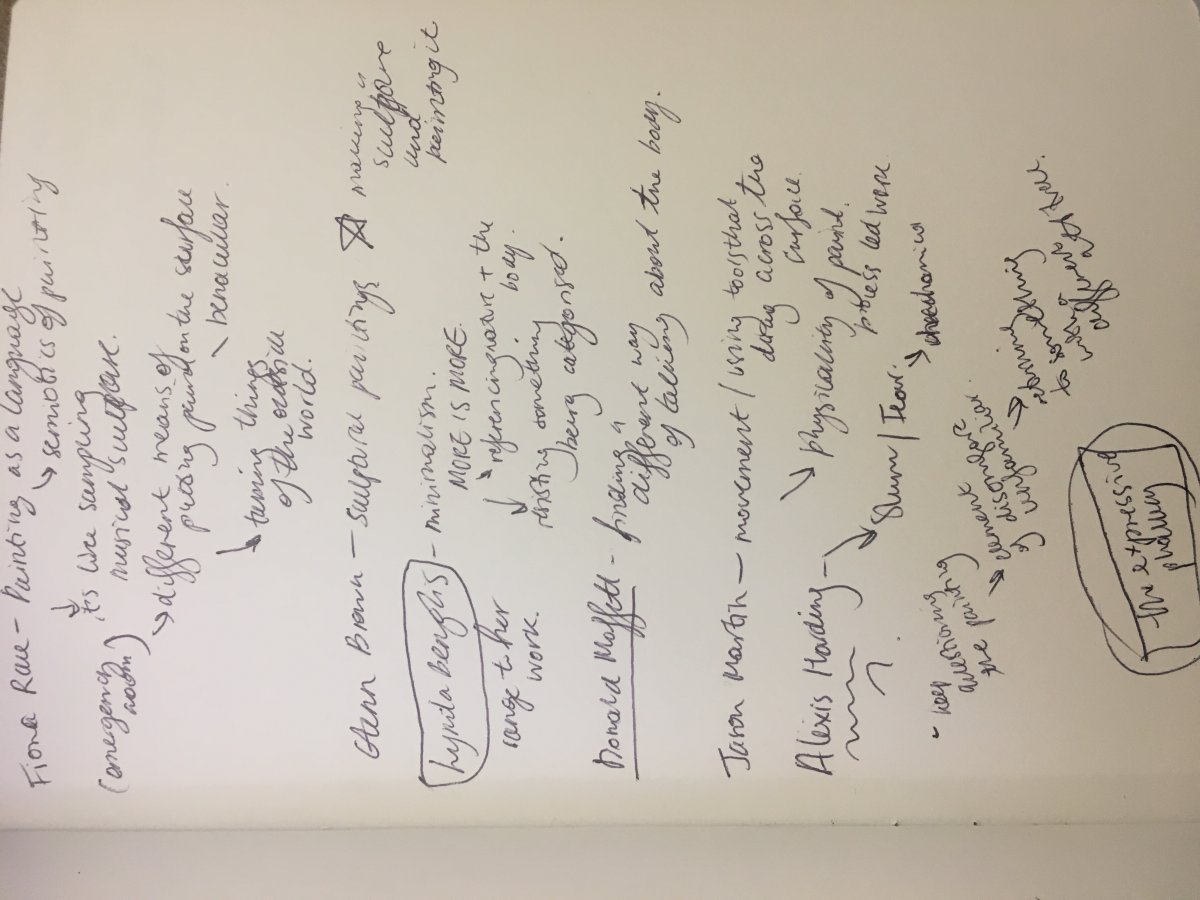 Fiona Rae - Painting as a language
↳ semiotics of painting
its like sampling
musical sculpture.
(emergency room)
↳ different means of
placing paint on the surface
\ benacular.
↳ taking things
of the outside
world.
Glenn Brown - sculptural paintings ☆ making a
sculpture
and
painting it
Lynda benglis - minimalism.
MORE IS MORE.
↳ referencing nature + the
body.
↓ resisting something
being categorised.
range to her
work.
Donald Moffett - finding a
different way
of talking about the body.
Jason Martin - movement / using tools that
drag across the
surface.
↳ physicality of paint.
process led work
Alexis Harding -
↳ Slump / Tear.
- keep
questioning
the painting
→ element
of discomfort
unfamiliar
→ returning
to something
The expressive